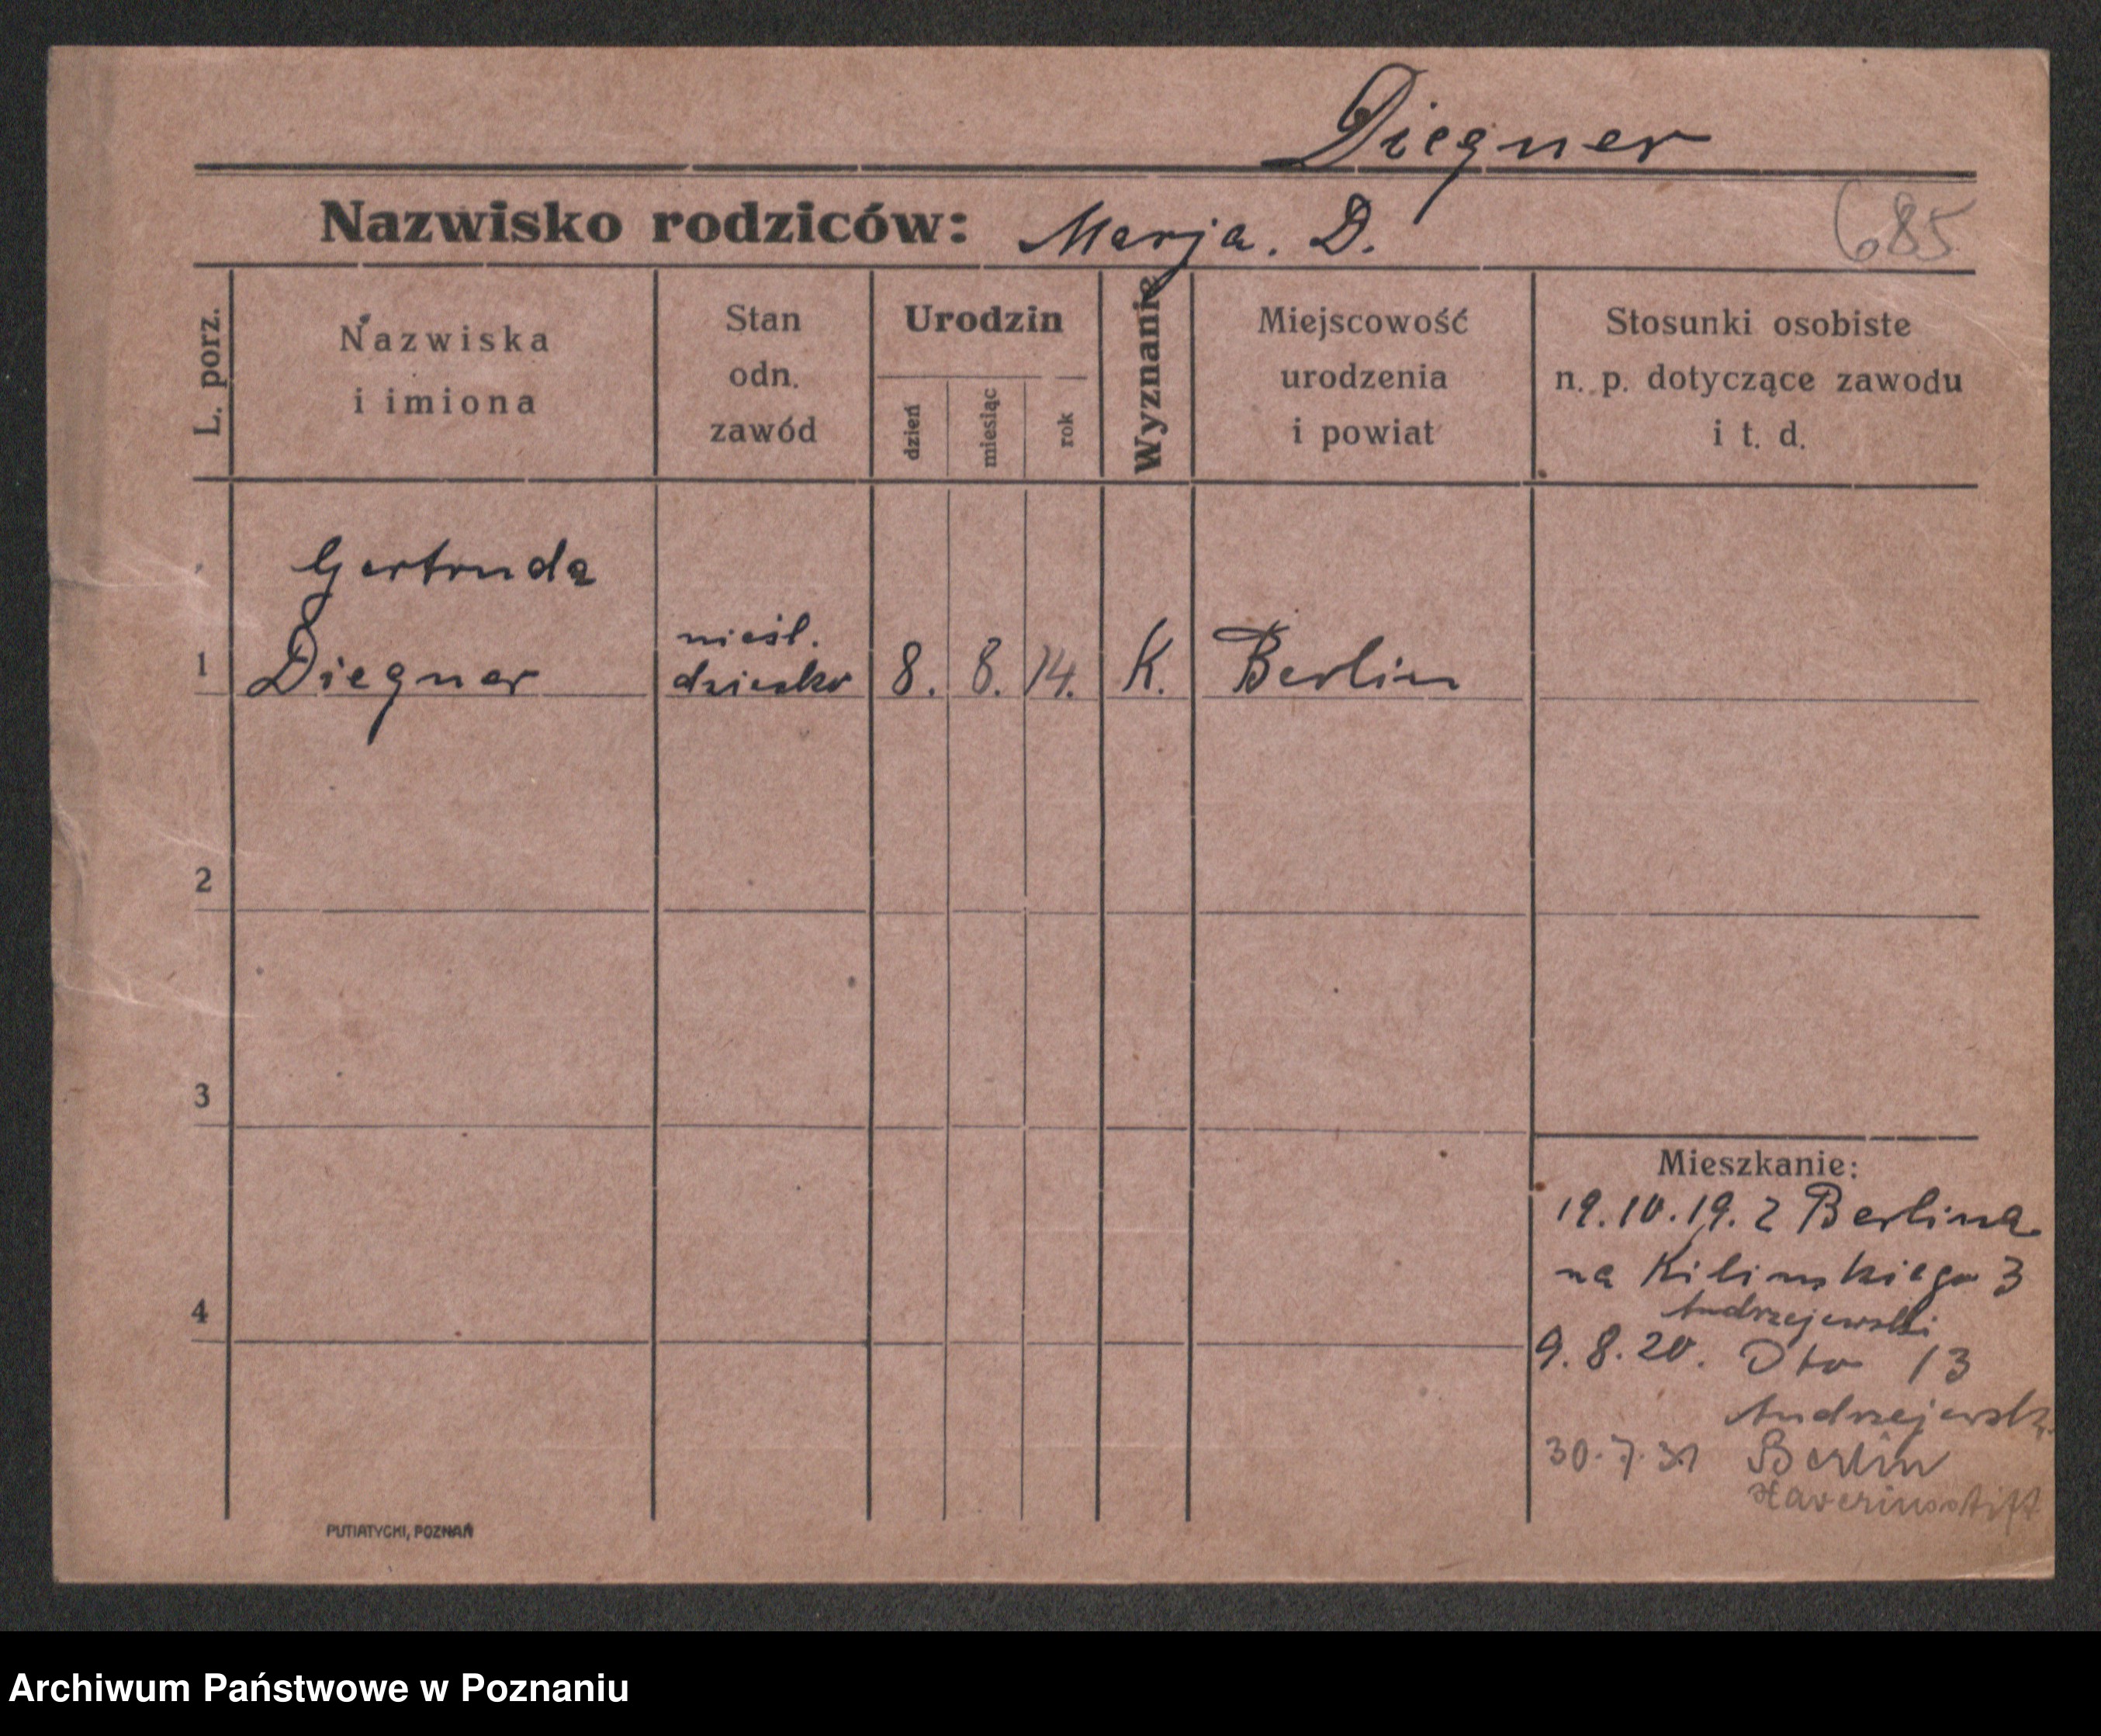 Diegner
Nazwisko rodziców: Marja. D.
685
L. porz.
Nazwiska
i imiona
Stan
odn.
zawód
Urodzin
dzień
miesiąc
rok
Wyznanie
Miejscowość
urodzenia
i powiat
Stosunki osobiste
n. p. dotyczące zawodu
i t. d.
Gertruda
1 Diegner nieśl. dziecko 8. 8. 14. K. Berlin
2
3
4
Mieszkanie:
19.10.19. z Berlina
na Kilinskiego 3
Andrzejewski
9.8.20. Dto 13
Andrzejewsk.
30.7.31 Berlin
Xaveriusstift
PUTIATYCKI, POZNAŃ
Archiwum Państwowe w Poznaniu